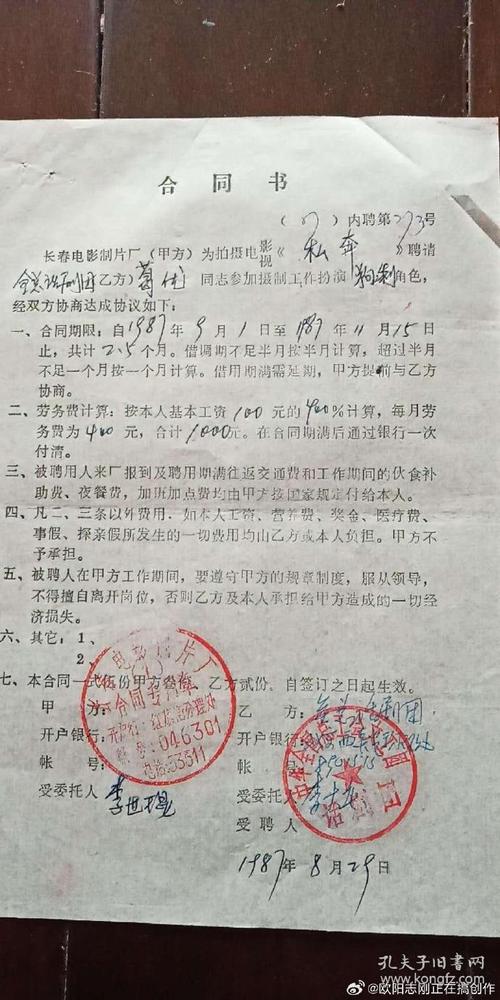 合同书
(87)内聘第273号
长春电影制片厂(甲方)为拍摄电影视《私奔》聘请
全总话剧团(乙方)葛优同志参加摄制工作扮演 角色,
经双方协商达成协议如下:
一、合同期限:自1987年9月1日至1987年11月15日
止,共计2.5个月。借调期不足半月按半月计算,超过半月
不足一个月按一个月计算。借用期满需延期,甲方提前与乙方
协商。
二、劳务费计算:按本人基本工资100元的400%计算,每月劳
务费为400元,合计1000元。在合同期满后通过银行一次
付清。
三、被聘用人来厂报到及聘用期满往返交通费和工作期间的伙食补
助费、夜餐费,加班加点费均由甲方按国家规定付给本人。
四、凡二、三条以外费用,如本人工资、营养费、奖金、医疗费、
事假、探亲假所发生的一切费用均由乙方或本人负担。甲方不
予承担。
五、被聘人在甲方工作期间,要遵守甲方的规章制度,服从领导,
不得擅自离开岗位,否则乙方及本人承担给甲方造成的一切经
济损失。
六、其它:1、
2、
七、本合同一式伍份甲方叁份,乙方贰份,自签订之日起生效。
甲方:
乙方:全总话剧团
开户银行:
开户银行:
帐号:
帐号:
受委托人
受委托人
受聘人
1987年8月29日
电影制片厂
合同专用章
046301
电话53511
话剧团
孔夫子旧书网
www.kongfz.com
@欧阳志刚正在搞创作